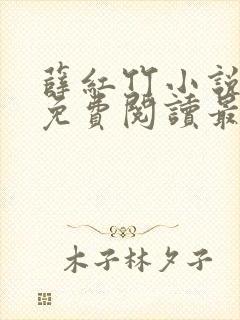 薛紅竹小說
免費閱讀最
木子林夕子